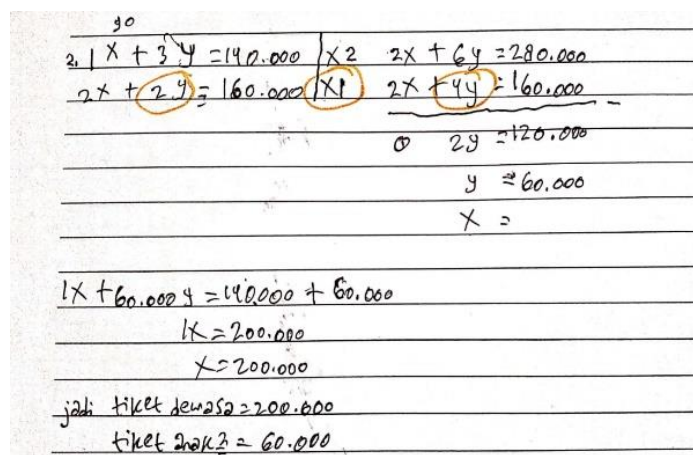 30
2. 1x + 3y = 140.000 | x2 2x + 6y = 280.000
2x + 2y = 160.000 | x1 2x + 4y = 160.000 -
0 2y = 120.000
y = 60.000
x =
1x + 60.000 y = 140.000 + 60.000
1x = 200.000
x = 200.000
jadi tiket dewasa = 200.000
tiket anak2 = 60.000